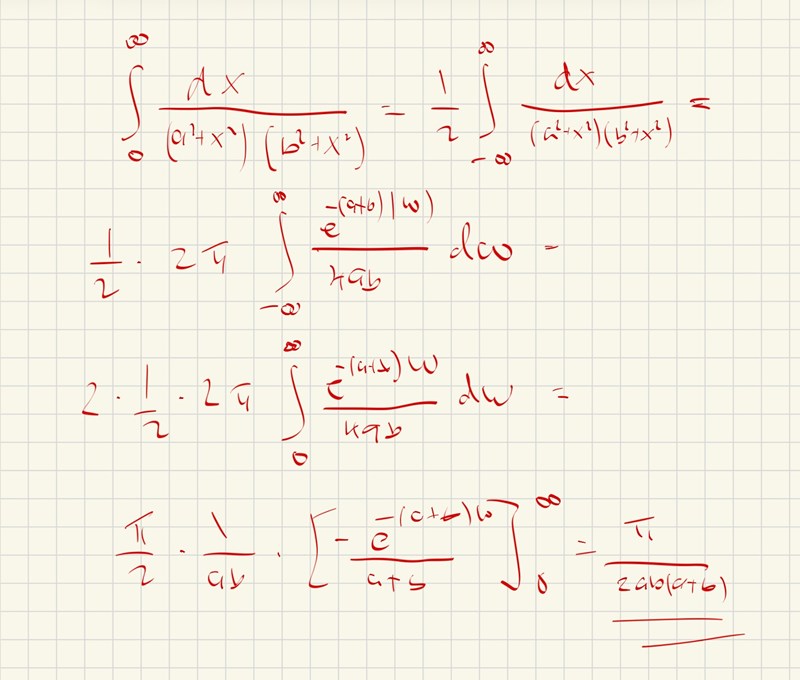 ∫₀^∞ dx / ((a²+x²)(b²+x²)) = 1/2 ∫_{-∞}^∞ dx / ((a²+x²)(b²+x²)) =
1/2 · 2π ∫_{-∞}^∞ e^{-(a+b)|w|} / 4ab dω =
2 · 1/2 · 2π ∫₀^∞ e^{-(a+b)w} / 4ab dw =
π/2 · 1/ab · [- e^{-(a+b)w} / a+b]₀^∞ = π / 2ab(a+b)